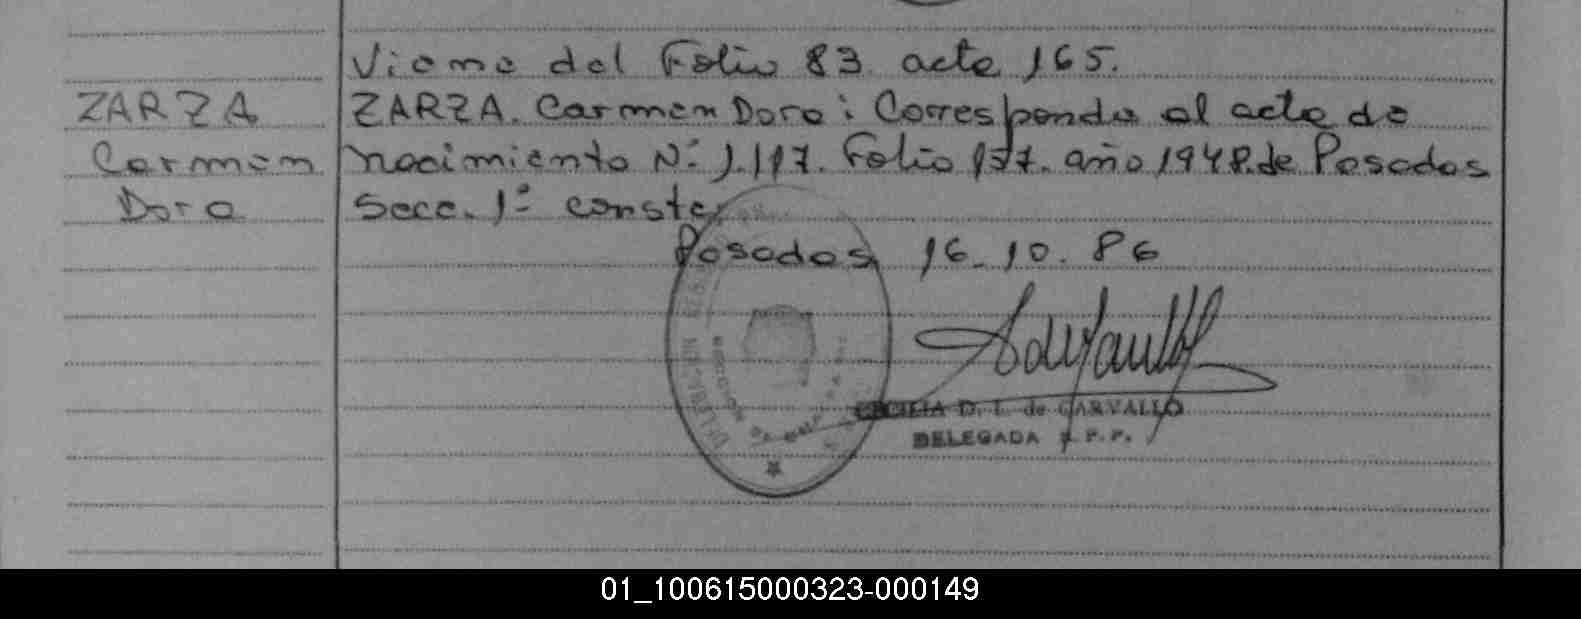 Viene del Folio 83. acta 165.
ZARZA
Carmen
Dora
ZARZA. Carmen Dora: Corresponde al acta de
nacimiento Nº 1.117. Folio 177. año 1948. de Posadas
Secc. 1º conste,
Posadas 16-10.86
CECILIA D. L. de CARVALLO
DELEGADA R.P.P.
01_100615000323-000149